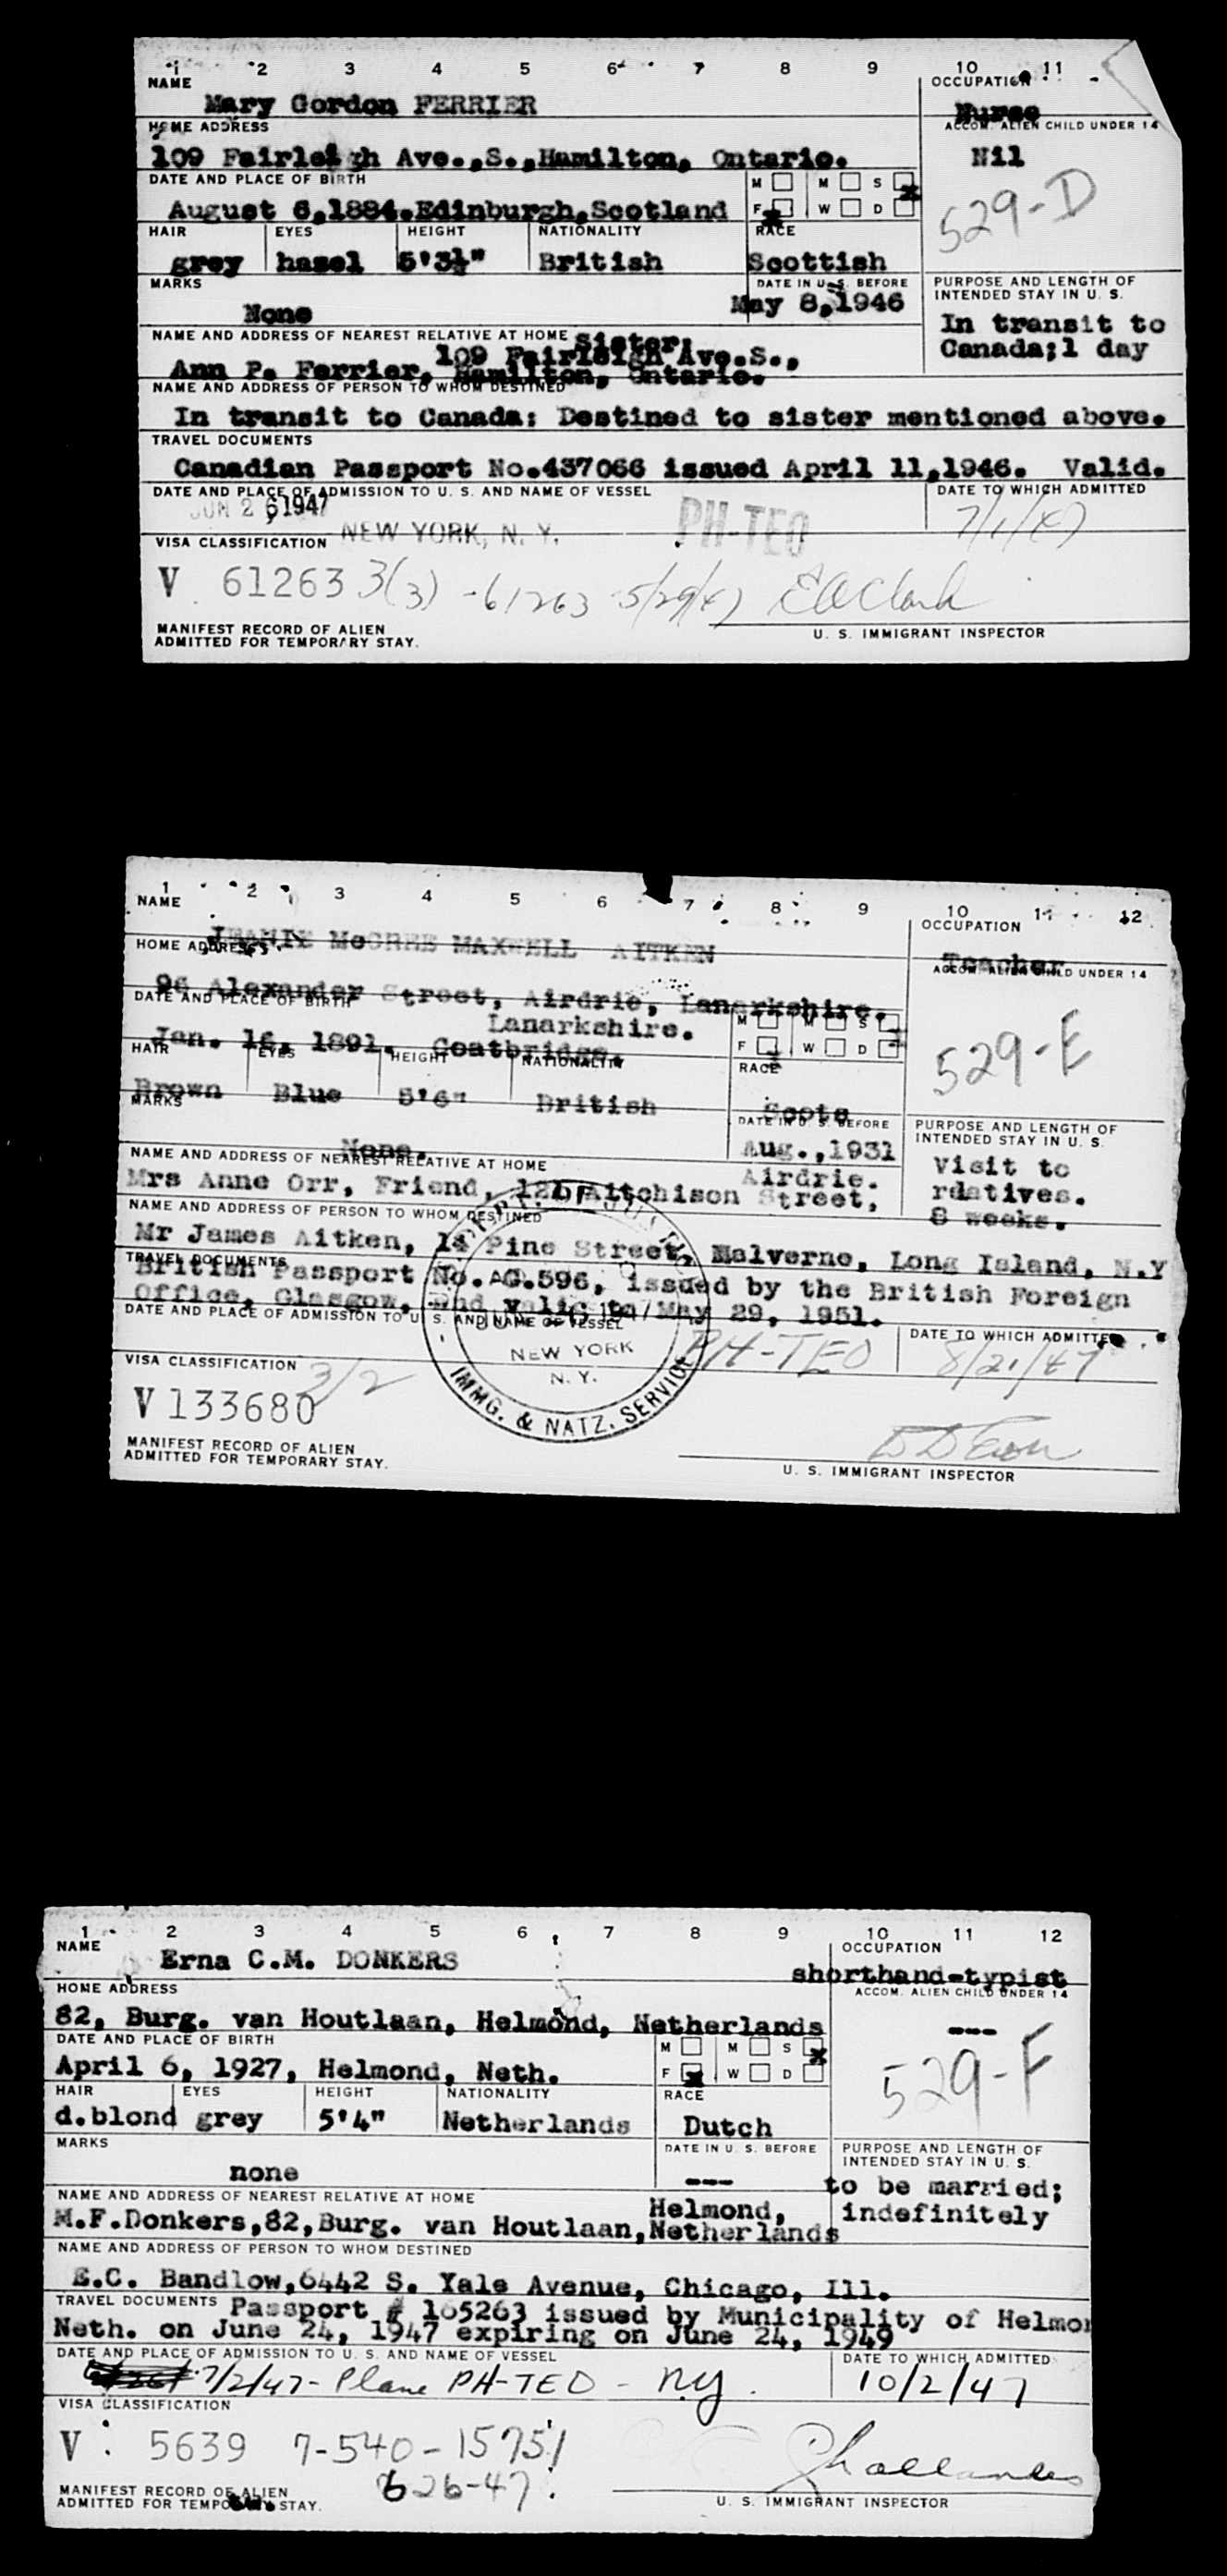 1 2 3 4 5 6 7 8 9 10 11
NAME OCCUPATION
Mary Gordon FERRIER Nurse
HOME ADDRESS ACCOM. ALIEN CHILD UNDER 14
109 Fairleigh Ave.,S.,Hamilton, Ontario. Nil
DATE AND PLACE OF BIRTH M M S
August 6,1884.Edinburgh,Scotland F W D
529-D
HAIR EYES HEIGHT NATIONALITY RACE
grey hazel 5'3½" British Scottish
MARKS DATE IN U. S. BEFORE PURPOSE AND LENGTH OF
INTENDED STAY IN U. S.
None May 8,1946
In transit to
Canada;1 day
NAME AND ADDRESS OF NEAREST RELATIVE AT HOME Sister:
109 Fairleigh Ave.S.,
Ann P. Ferrier, Hamilton, Ontario.
NAME AND ADDRESS OF PERSON TO WHOM DESTINED
In transit to Canada: Destined to sister mentioned above.
TRAVEL DOCUMENTS
Canadian Passport No.437066 issued April 11,1946. Valid.
DATE AND PLACE OF ADMISSION TO U. S. AND NAME OF VESSEL DATE TO WHICH ADMITTED
JUN 26 1947 NEW YORK, N. Y. PH-TEO 7/1/47
VISA CLASSIFICATION
V 61263 3(3) -61263 5/29/47 EA Clark
MANIFEST RECORD OF ALIEN
ADMITTED FOR TEMPORARY STAY.
U. S. IMMIGRANT INSPECTOR
1 2 3 4 5 6 7 8 9 10 11 12
NAME OCCUPATION
JEANIE McCREE MAXWELL AITKEN Teacher
HOME ADDRESS ACCOM. ALIEN CHILD UNDER 14
96 Alexander Street, Airdrie, Lanarkshire.
DATE AND PLACE OF BIRTH
Lanarkshire. M M S
Jan. 16, 1891. Coatbridge. F W D
529-E
HAIR EYES HEIGHT NATIONALITY RACE
Brown Blue 5'6" British Scots
MARKS DATE IN U. S. BEFORE PURPOSE AND LENGTH OF
INTENDED STAY IN U. S.
None. Aug.,1931
Visit to
rdatives.
8 weeks.
NAME AND ADDRESS OF NEAREST RELATIVE AT HOME Airdrie.
Mrs Anne Orr, Friend, Aitchison Street,
NAME AND ADDRESS OF PERSON TO WHOM DESTINED
Mr James Aitken, 14 Pine Street, Malverne, Long Island, N.Y
TRAVEL DOCUMENTS
British Passport No. AG.596, issued by the British Foreign
Office, Glasgow, and valid to May 29, 1951.
DATE AND PLACE OF ADMISSION TO U. S. AND NAME OF VESSEL DATE TO WHICH ADMITTED
NEW YORK
N. Y.
IMMG. & NATZ. SERVICE
PH-TEO 8/21/47
VISA CLASSIFICATION 3/2
V 133680
MANIFEST RECORD OF ALIEN
ADMITTED FOR TEMPORARY STAY.
U. S. IMMIGRANT INSPECTOR
1 2 3 4 5 6 7 8 9 10 11 12
NAME OCCUPATION
Erna C.M. DONKERS shorthand-typist
HOME ADDRESS ACCOM. ALIEN CHILD UNDER 14
82, Burg. van Houtlaan, Helmond, Netherlands ---
DATE AND PLACE OF BIRTH M M S
April 6, 1927, Helmond, Neth. F W D
529-F
HAIR EYES HEIGHT NATIONALITY RACE
d.blond grey 5'4" Netherlands Dutch
MARKS DATE IN U. S. BEFORE PURPOSE AND LENGTH OF
INTENDED STAY IN U. S.
none ---
to be married;
indefinitely
NAME AND ADDRESS OF NEAREST RELATIVE AT HOME Helmond,
M.F.Donkers,82,Burg. van Houtlaan,Netherlands
NAME AND ADDRESS OF PERSON TO WHOM DESTINED
E.C. Bandlow,6442 S. Yale Avenue, Chicago, Ill.
TRAVEL DOCUMENTS Passport # 165263 issued by Municipality of Helmon
Neth. on June 24, 1947 expiring on June 24, 1949
DATE AND PLACE OF ADMISSION TO U. S. AND NAME OF VESSEL DATE TO WHICH ADMITTED
7/2/47 - Plane PH-TEO - N.Y. 10/2/47
VISA CLASSIFICATION
V 5639 7-540-15751
626-47
MANIFEST RECORD OF ALIEN
ADMITTED FOR TEMPORARY STAY.
U. S. IMMIGRANT INSPECTOR